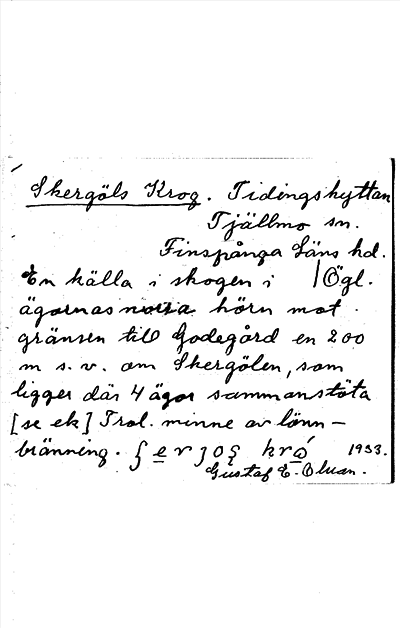 Skergöls Krog. Tidingshyttan
Tjällmo sn.
Finspånga Läns hd.
En källa i skogen i /Ögl.
ägornas norra hörn mot
gränsen till Godegård en 200
m s.v. om Skergölen, som
ligger där 4 ägor sammanstöta
[se ek] Trol. minne av lönn-
bränning. 1933.
Gustaf E.